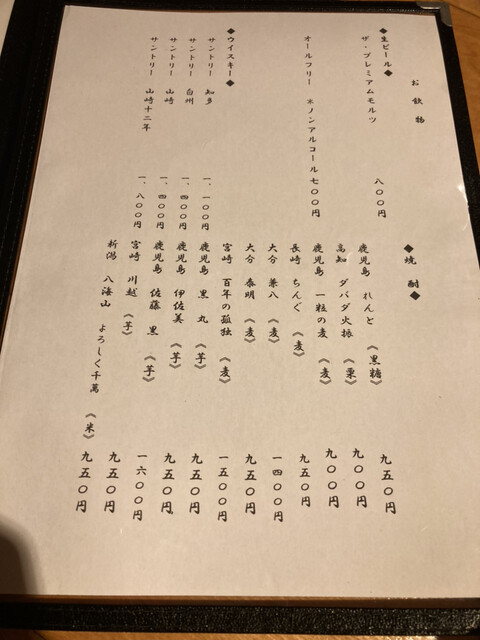 お飲物
◆生ビール◆
ザ・プレミアムモルツ 八〇〇円
オールフリー ※ノンアルコール 七〇〇円
◆ウイスキー◆
サントリー 知多 一、一〇〇円
サントリー 白州 一、四〇〇円
サントリー 山崎 一、四〇〇円
サントリー 山崎十二年 一、八〇〇円
◆焼酎◆
鹿児島 れんと 《黒糖》 九五〇円
高知 ダバダ火振 《栗》 九〇〇円
鹿児島 一粒の麦 《麦》 九〇〇円
長崎 ちんぐ 《麦》 九五〇円
大分 兼八 《麦》 一四〇〇円
大分 泰明 《麦》 九五〇円
宮崎 百年の孤独 《麦》 一五〇〇円
鹿児島 黒丸 《芋》 九五〇円
鹿児島 伊佐美 《芋》 九五〇円
鹿児島 佐藤 黒 《芋》 一六〇〇円
宮崎 川越 《芋》 九五〇円
新潟 八海山 よろしく千萬 《米》 九五〇円